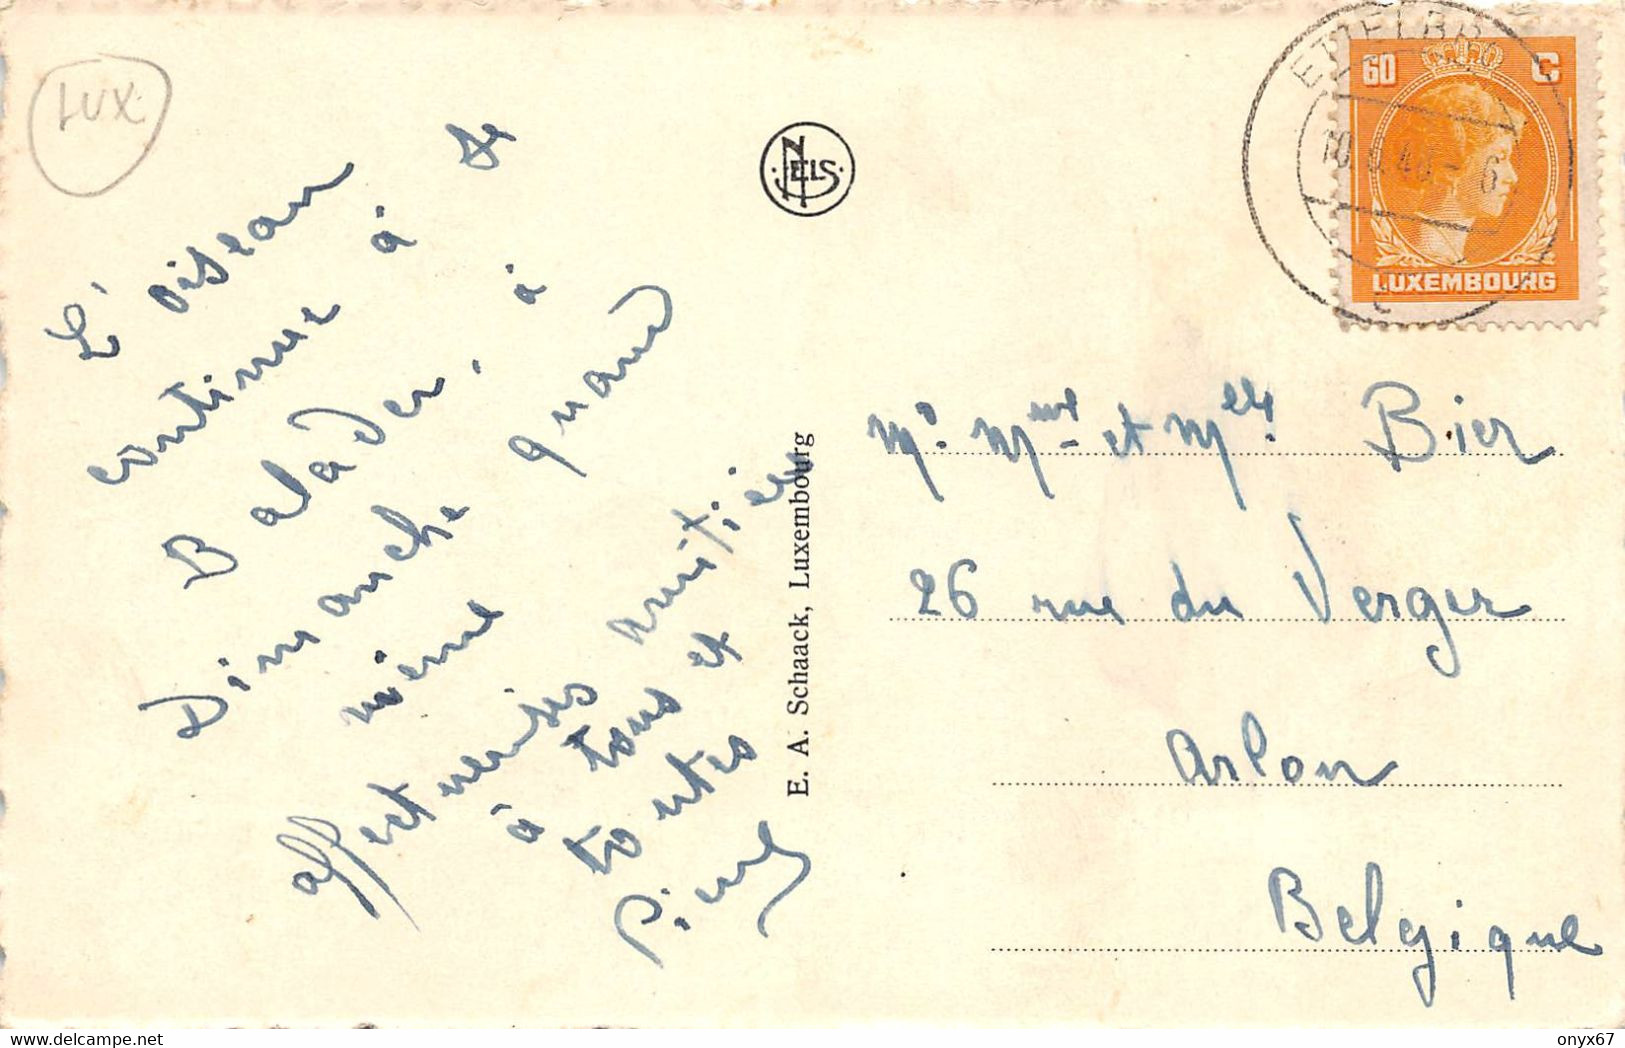 LUX.
L'oiseau
continue à se
Balader. à
Dimanche quand
même
affectueuses amitiés
à tous et
toutes
Pierre
NELS
E. A. Schaack, Luxembourg
60 C
LUXEMBOURG
Mr. Mme et Mlle. Bier
26 rue du Verger
Arlon
Belgique
www.delcampe.net
onyx67